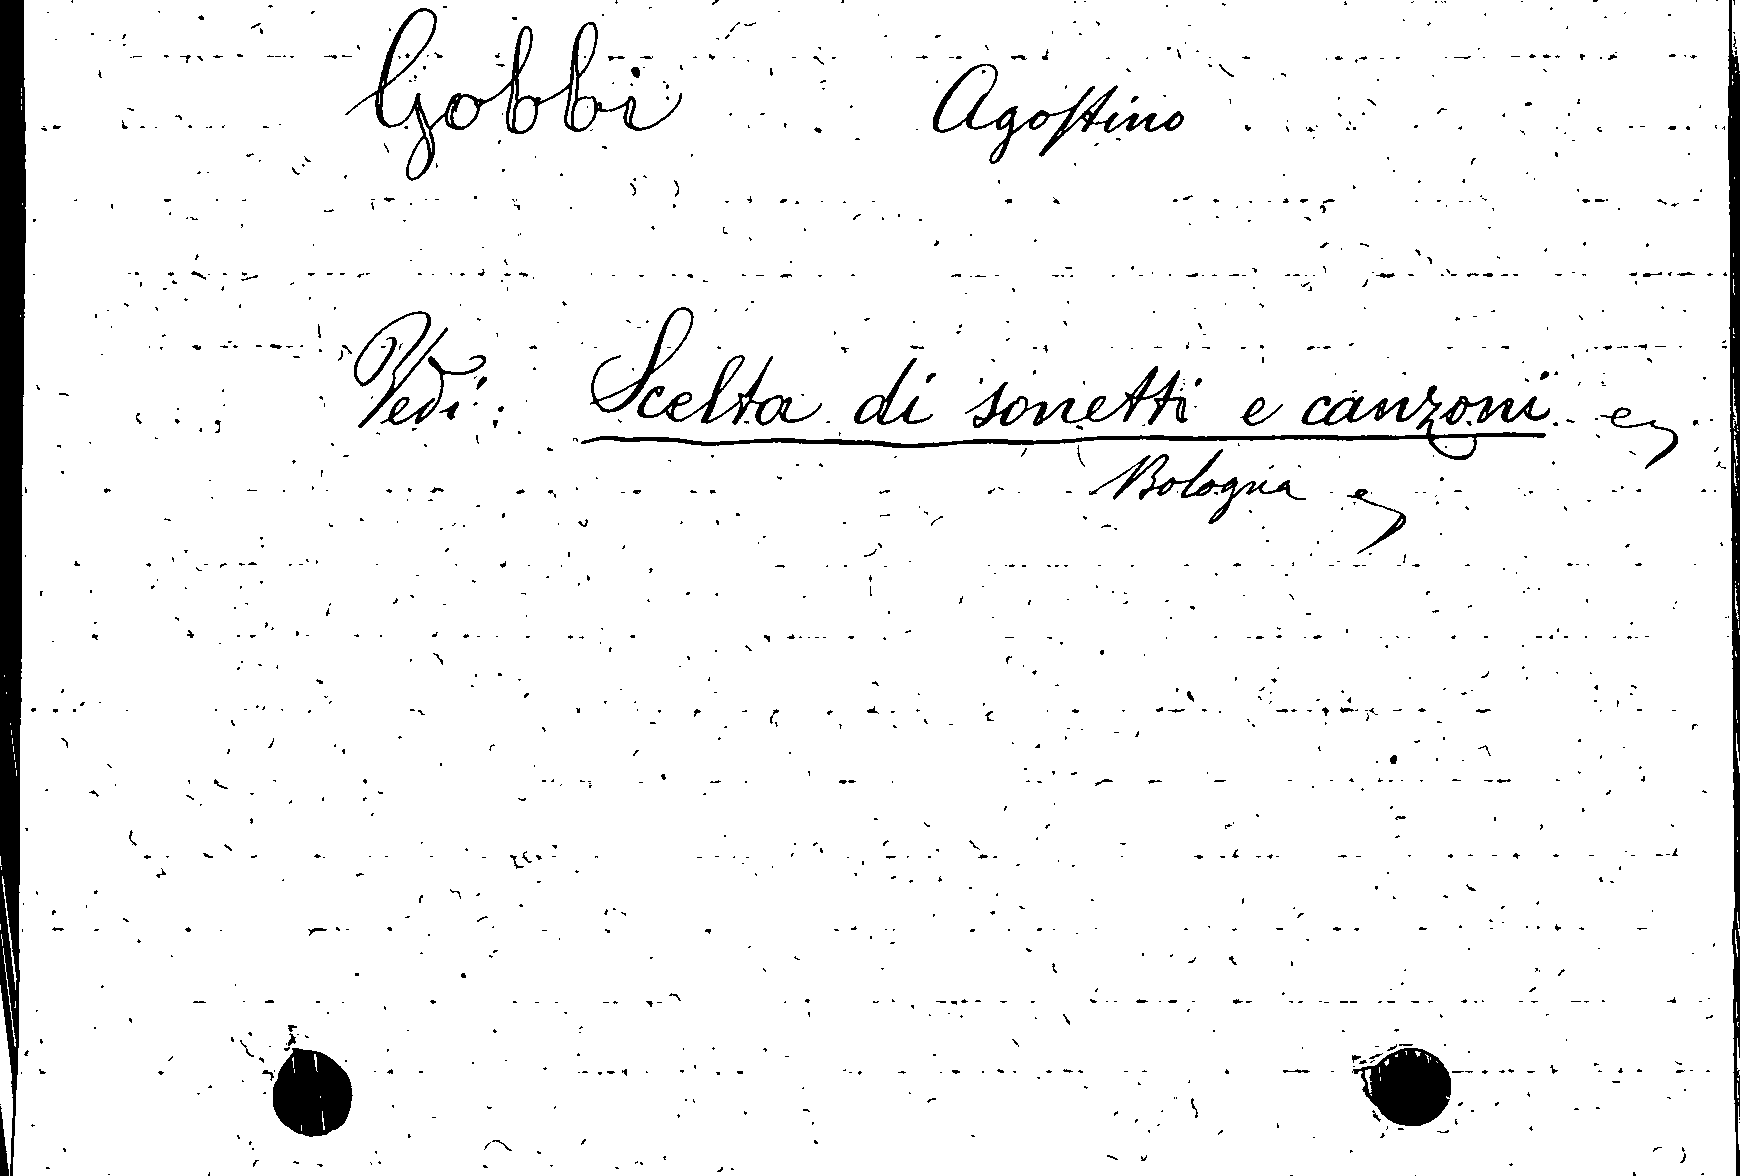 Gobbi Agostino
Vedi: Scelta di sonetti e canzoni
Bologna